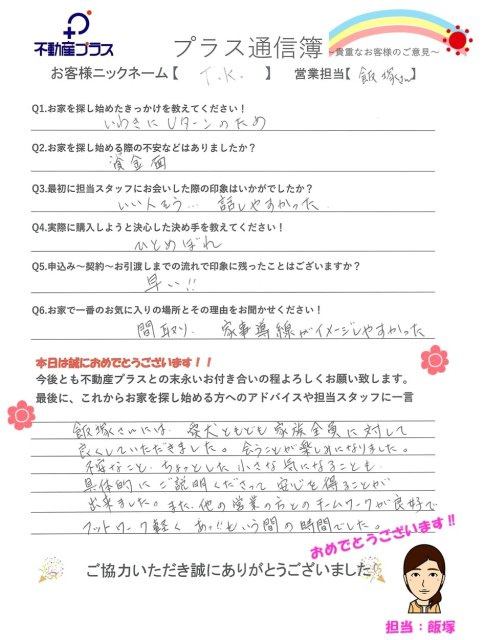 不動産プラス
プラス通信簿 ~貴重なお客様のご意見~
お客様ニックネーム【 T.K. 】 営業担当【 飯塚さん 】
Q1.お家を探し始めたきっかけを教えてください！
いわきにUターンのため
Q2.お家を探し始める際の不安などはありましたか？
資金面
Q3.最初に担当スタッフにお会いした際の印象はいかがでしたか？
いい人そう… 話しやすかった
Q4.実際に購入しようと決心した決め手を教えてください！
ひとめぼれ
Q5.申込み～契約～お引渡しまでの流れで印象に残ったことはございますか？
早い!!
Q6.お家で一番のお気に入りの場所とその理由をお聞かせください！
間取り. 家事導線がイメージしやすかった
本日は誠におめでとうございます！！
今後とも不動産プラスとの末永いお付き合いの程よろしくお願い致します。
最後に、これからお家を探し始める方へのアドバイスや担当スタッフに一言
飯塚さんには、愛犬ともども家族全員に対して
良くしていただきました。会うことが楽しみになりました。
不安なこと、ちょっとした小さな気になることも
具体的にご説明くださって安心を得ることが
出来ました。また、他の営業の方とのチームワークが良好で
フットワーク軽く あっという間の時間でした。
おめでとうございます!!
ご協力いただき誠にありがとうございました
担当：飯塚